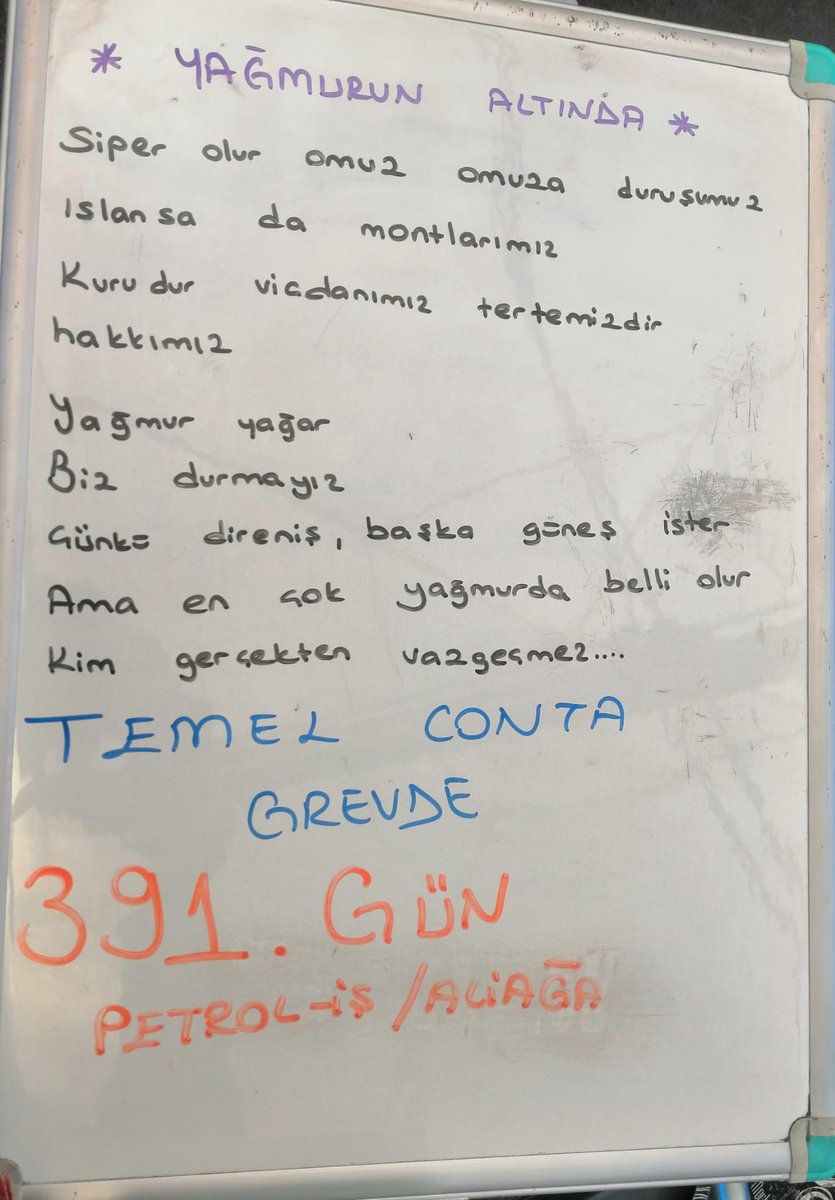 * YAĞMURUN ALTINDA *
Siper olur omuz omuza duruşumuz
Islansa da montlarımız
Kurudur vicdanımız tertemizdir
hakkımız
Yağmur yağar
Biz durmayız
Günkü direniş, başka güneş ister
Ama en çok yağmurda belli olur
Kim gerçekten vazgeçmez....
TEMEL CONTA
GREVDE
391. GÜN
PETROL-iŞ /ALİAĞA